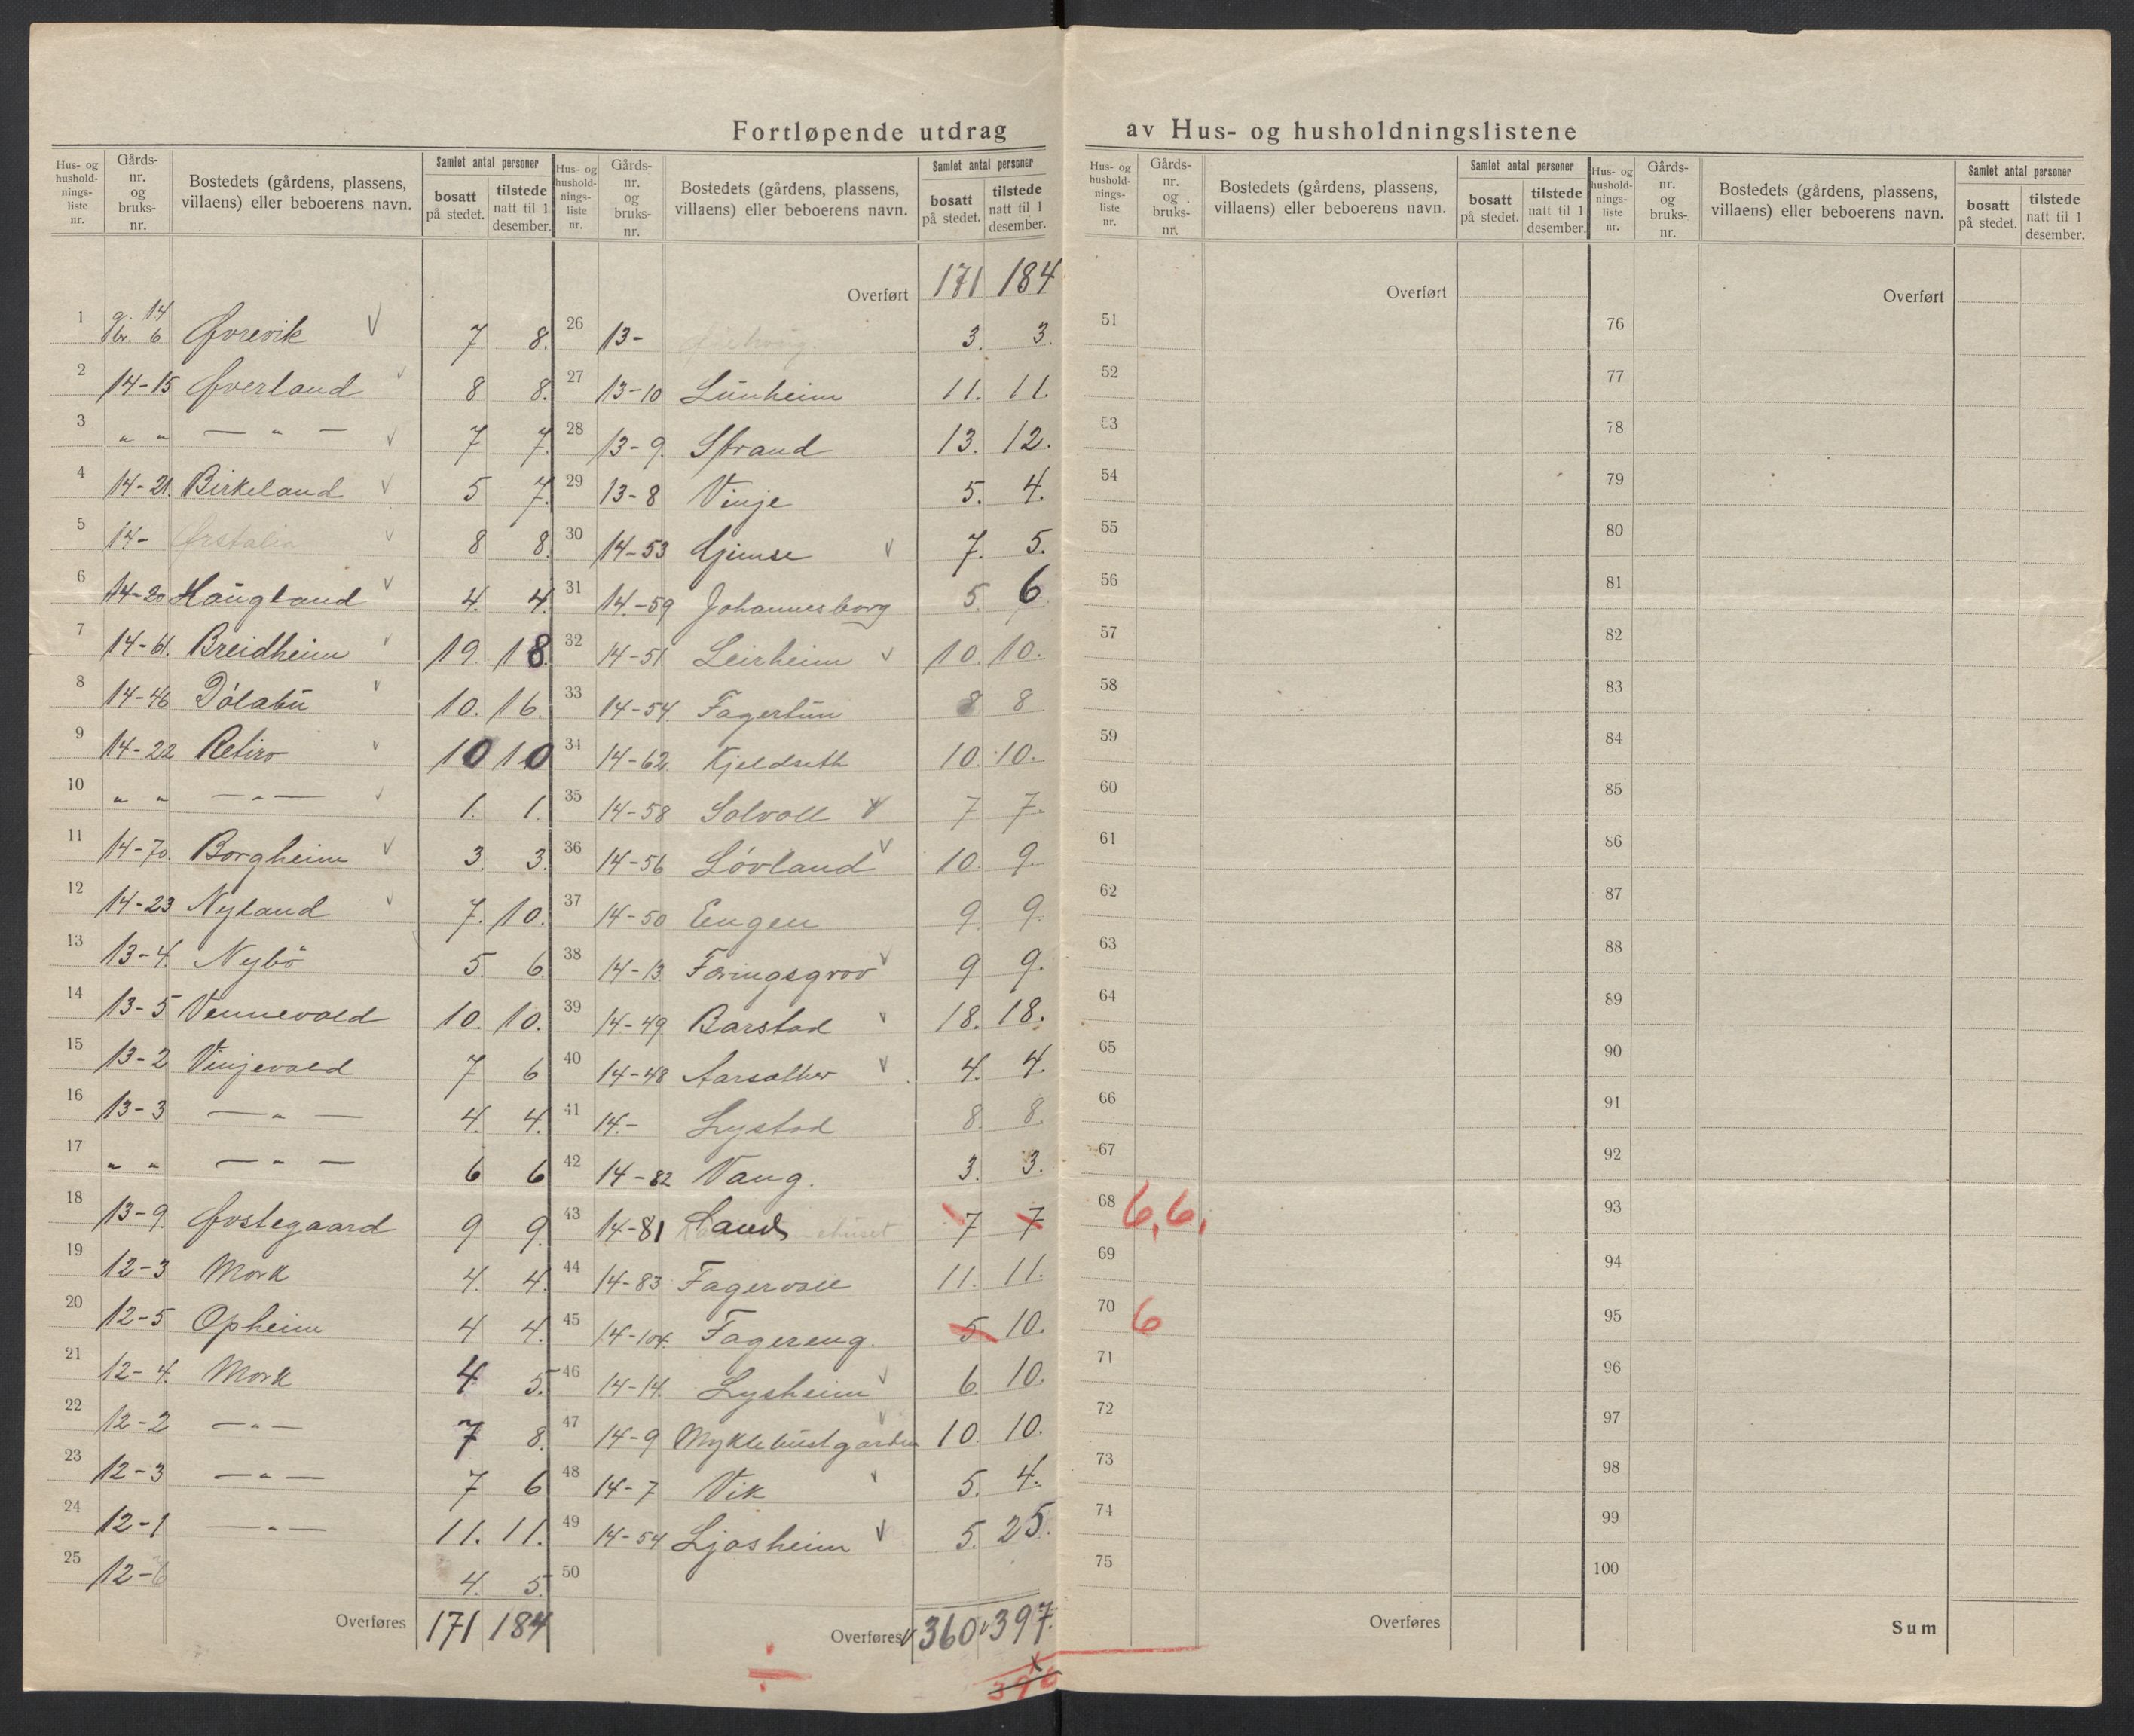 Fortløpende utdrag av Hus- og husholdningslistene
Hus- og hushold-nings-liste nr. | Gårds-nr. og bruks-nr. | Bostedets (gårdens, plassens, villaens) eller beboerens navn. | Samlet antal personer | bosatt på stedet. | tilstede natt til 1 desember.
1 g. 14 br. 6 Øvrevik V 7. 8.
2 14-15 Øverland v 8 8.
3 " " — " — v 7 7.
4 14-21. Birkeland v 5 7.
5 14- v 8 8.
6 14-20 Haugland v 4. 4.
7 14-61. Breidheim v 19. 18.
8 14-46 Dølabu v 10. 16.
9 14-22 Retiro v 10 10
10 " " — " — v 1. 1.
11 14-70. Borgheim v 3. 3.
12 14-23 Nyland v 7. 10.
13 13-4. Nybö 5. 6.
14 13-5 Vennevold 10. 10.
15 13-2 Vinjevold 7 6
16 13-3 — " — 4. 4.
17 " " — " — 6 6
18 13-9. Østegaard 9 9.
19 12-3 Mork 4. 4.
20 12-5 Opheim 4 4.
21 12-4. Mork 4 5.
22 12-2 — " — 7 8.
23 12-3 — " — 7 6
24 12-1 — " — 11. 11.
25 12-6 4. 5.
Overføres 171 184
Hus- og hushold-nings-liste nr. | Gårds-nr. og bruks-nr. | Bostedets (gårdens, plassens, villaens) eller beboerens navn. | Samlet antal personer | bosatt på stedet. | tilstede natt til 1 desember.
Overført 171 184
26 13- 3. 3.
27 13-10 Lunheim 11. 11.
28 13-9. Strand 13. 12.
29 13-8 Vinje 5. 4.
30 14-53 Gimse v 7. 5.
31 14-59 Johannesborg 5 6
32 14-51. Leirheim v 10. 10.
33 14-54. Fagertun 8 8
34 14-62. Kjeldseth 10. 10.
35 14-58 Solvoll v 7 7.
36 14-56 Løvland v 10. 9.
37 14-50 Engen 9. 9.
38 14-13. Føringsgrov v 9 9.
39 14-49. Barstad v 18. 18.
40 14-48 Aarsæther v 4. 4.
41 14.- Lystad 8. 8.
42 14-82 Vang. 3. 3.
43 14-81 Sand 7 7
44 14-83 Fagervoll 11. 11.
45 14-104. Fagereng. 5 10.
46 14-14. Lysheim v 6 10.
47 14-9 Myklebustgarden v 10. 10.
48 14-7 Vik v 5. 4.
49 14-54 Ljosheim v 5. 25.
50
Overføres v 360 v 397.
÷
x
396
Hus- og hushold-nings-liste nr. | Gårds-nr. og bruks-nr. | Bostedets (gårdens, plassens, villaens) eller beboerens navn. | Samlet antal personer | bosatt på stedet. | tilstede natt til 1 desember.
Overført
51
52
53
54
55
56
57
58
59
60
61
62
63
64
65
66
67
68 6, 6,
69
70 6
71
72
73
74
75
Overføres
Hus- og hushold-nings-liste nr. | Gårds-nr. og bruks-nr. | Bostedets (gårdens, plassens, villaens) eller beboerens navn. | Samlet antal personer | bosatt på stedet. | tilstede natt til 1 desember.
Overført
76
77
78
79
80
81
82
83
84
85
86
87
88
89
90
91
92
93
94
95
96
97
98
99
100
Sum